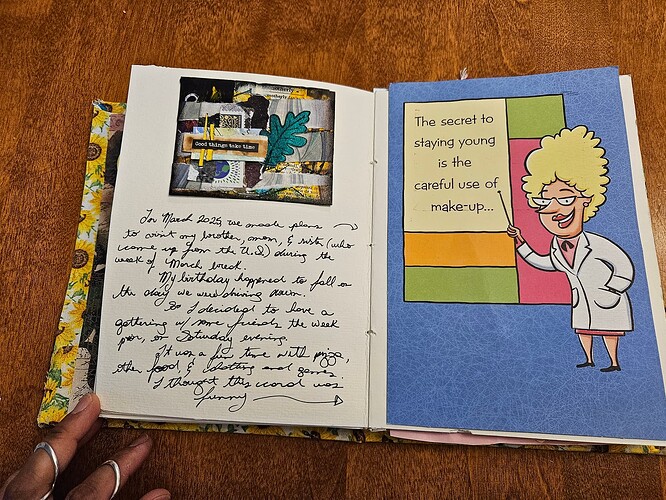 Good things take time
For March 2025, we made plans
to visit my brother, mom, & sister (who
came up from the U.S.) during the
week of March break.
My birthday happened to fall on
the day we were driving down.
So I decided to have a
gathering w/ some friends the week
prior, on Saturday evening.
It was a fun time with pizza,
other food, & chatting and games.
I thought this card was
funny
The secret to
staying young
is the
careful use of
make-up...